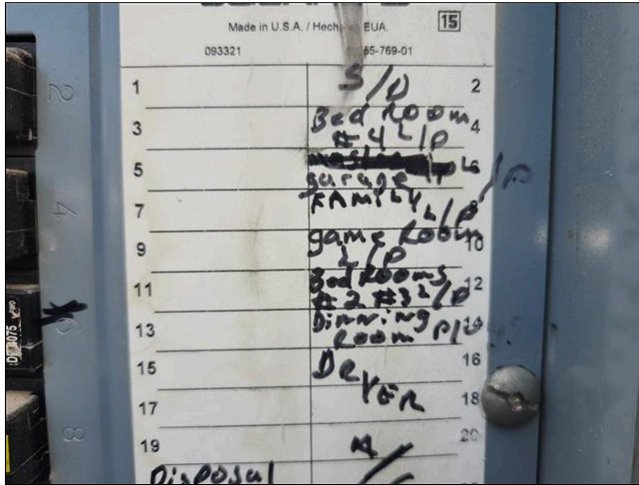 Made in U.S.A. / Hech EUA. 15
093321 65-769-01
1 S/D 2
3 Bed Room 4
#4 L/P
5 6
garage L/P
7 FAMILY L/P 8
9 game Room 10
L/P
11 Bed Rooms 12
#2 #3 L/P
13 Dinning 14
Room P/L
15 DRYER 16
17 18
19 20
Disposal
2
4
6
8
075